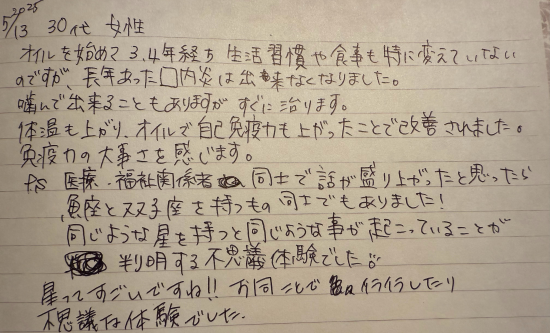 2025
5/13 30代 女性
オイルを始めて3,4年経ち 生活習慣や食事も特に変えていない
のですが、長年あった口内炎は出来なくなりました。
噛んで出来ることもありますが すぐに治ります。
体温も上がり、オイルで自己免疫力も上がったことで改善されました。
免疫力の大事さを感じます。
P.S 医療・福祉関係者 同士で話が盛り上がったと思ったら
魚座と双子座を持つもの同士でもありました!
同じような星を持つと同じような事が起こっていることが
判明する不思議体験でした。
星ってすごいですね!! 同ことで イライラしたり
不思議な体験でした.